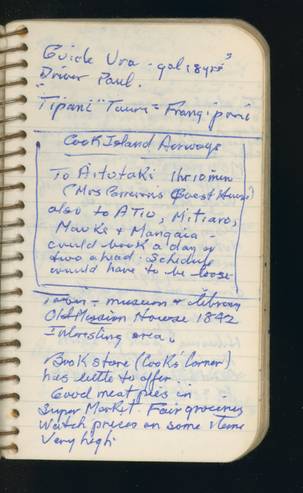 Guide Ura - gal 18 yrs
Driver Paul.
"Tipani" Tours = Frangipani
Cook Island Airways
To Aitutaki 1 hr 10 min
(Mrs Guest House)
also to Atiu, Mitiaro,
Mauke & Mangaia -
could book a day or
two ahead. Schedule
would have to be loose
Town - museum & library
Old Mission House 1842
Interesting area.
Book store (Cooks Corner)
has little to offer.
Good meat pies in
Super Market. Fair groceries
Watch prices on some items
Very high.